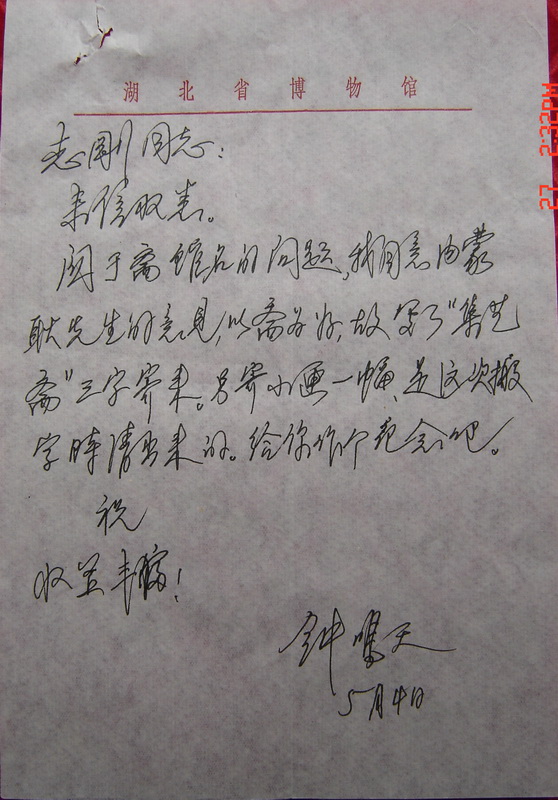 湖北省博物馆
志刚同志：
来信收悉。
关于斋馆名的问题，我同意内蒙
耿先生的意见，以斋为好，故写了“集艺
斋”三字寄来。另寄小画一幅，是这次搬
字时清出来的。给你作个纪念吧。
祝
收益丰硕！
钟鸣天
5月4日